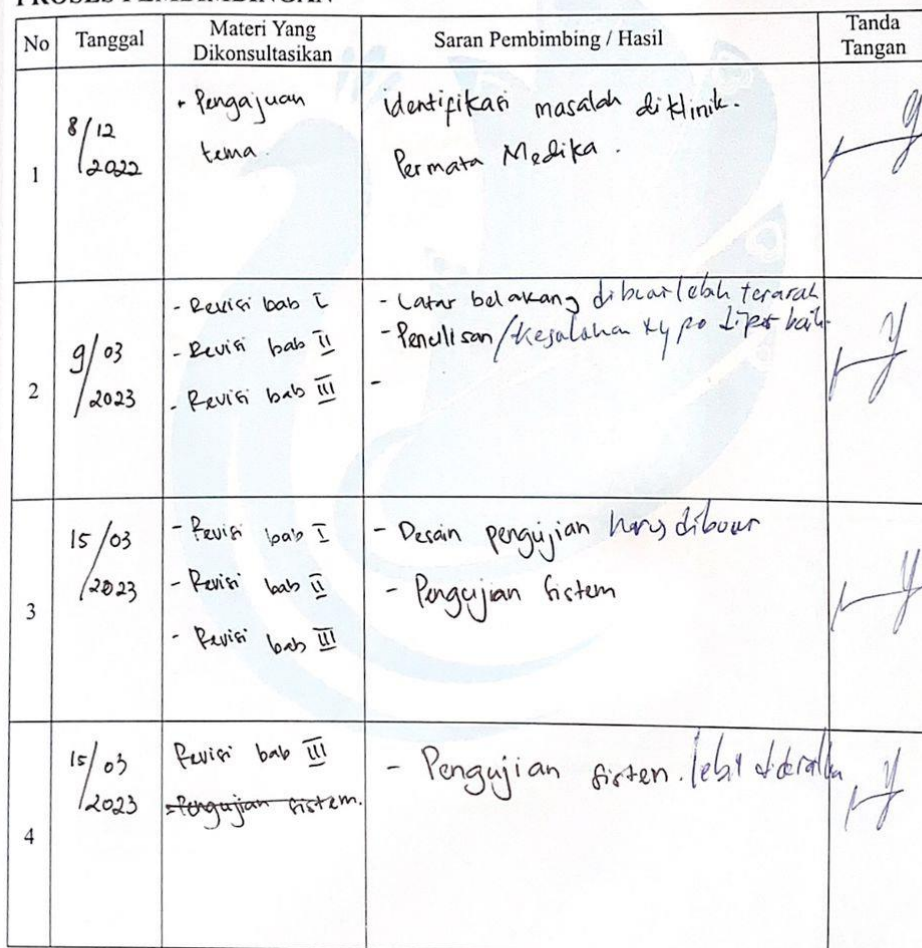 PROSES PEMBIMBINGAN
No Tanggal Materi Yang Dikonsultasikan Saran Pembimbing / Hasil Tanda Tangan
1
8/12
2022
- Pengajuan
tema.
identifikasi masalah di klinik.
Permata Medika.
2
9/03
2023
- Revisi bab I
- Revisi bab II
- Revisi bab III
- Latar belakang dibuat lebih terarah
- Penulisan/kesalahan typo diperbaik
-
3
15/03
2023
- Revisi bab I
- Revisi bab II
- Revisi bab III
- Desain pengujian harus dibuat
- Pengujian sistem
4
15/03
2023
Revisi bab III
- Pengujian sistem.
- Pengujian sistem. lebih